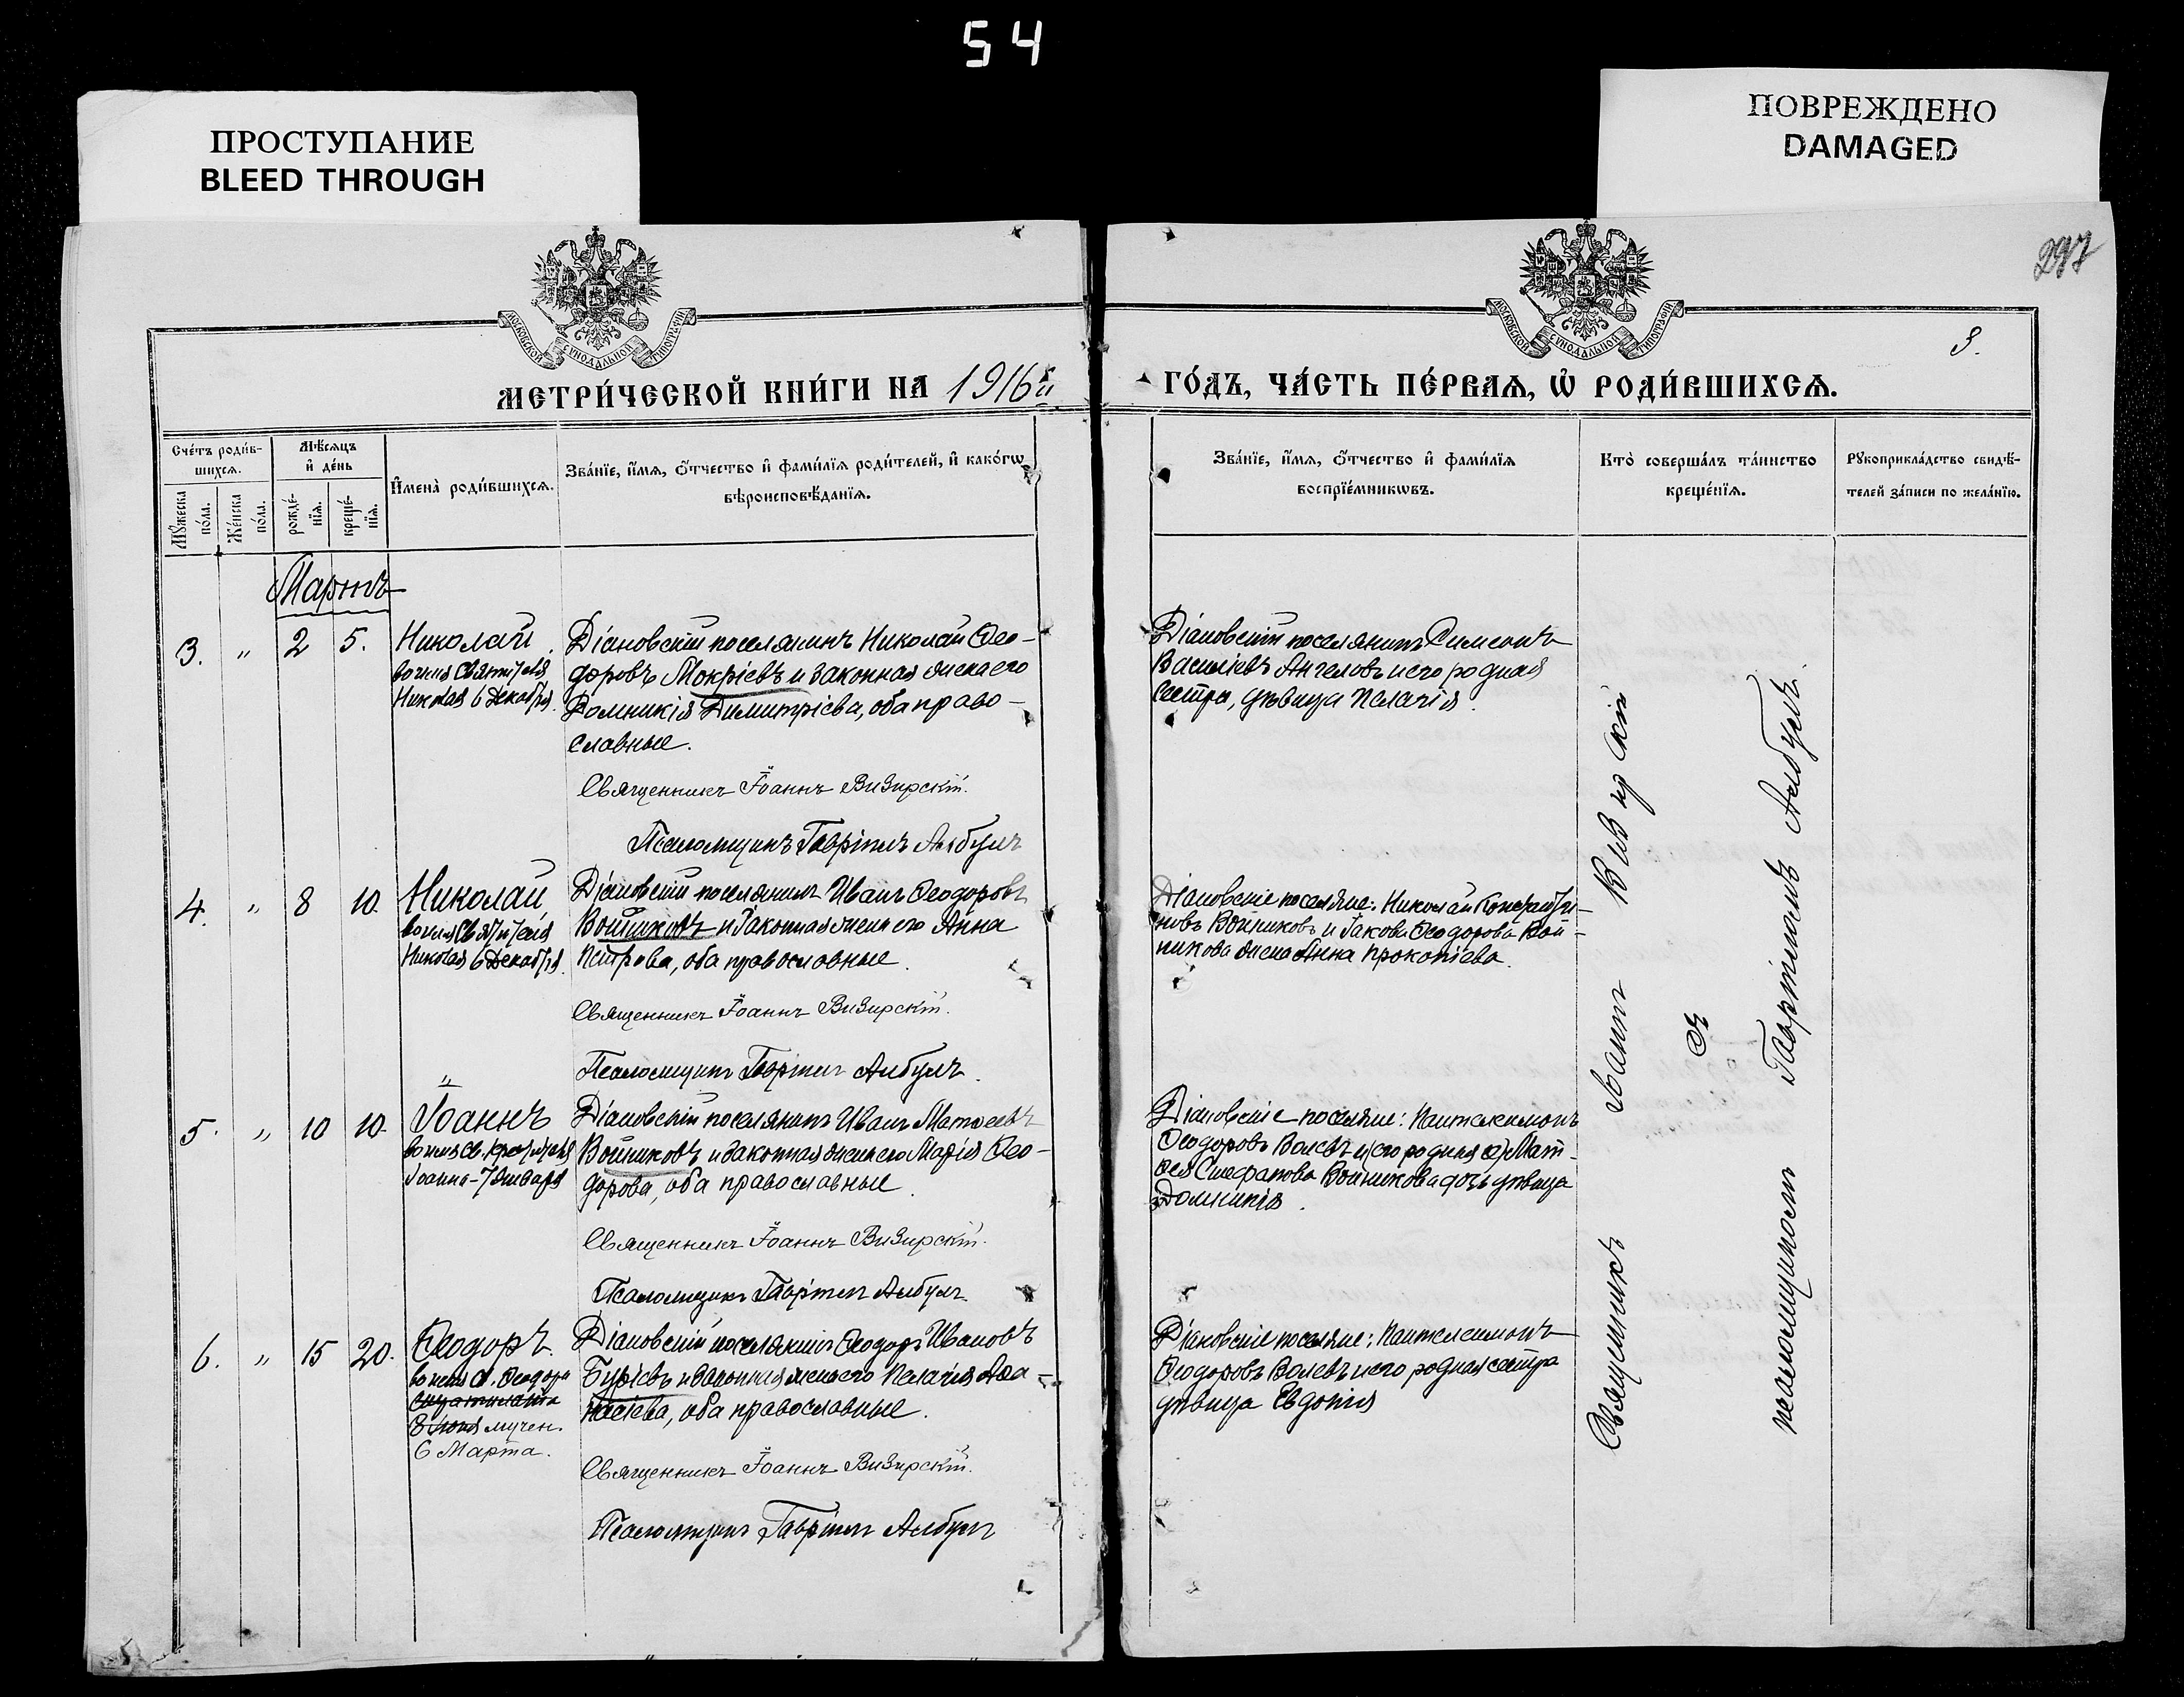 54
ПРОСТУПАНИЕ
BLEED THROUGH
ПОВРЕЖДЕНО
DAMAGED
297
МОСКОВСКОЙ СѴНОДАЛЬНОЙ ТИПОГРАФІИ
МОСКОВСКОЙ СѴНОДАЛЬНОЙ ТИПОГРАФІИ
3.
МЕТРИ́ЧЕСКОЙ КНИ́ГИ НА 1916й
ГО́ДЪ, ЧА́СТЬ ПЕ́РВАЯ, Ѡ҆ РОДИ́ВШИХСЯ.
Сче́тъ роди́в-
шихся.
Мꙋ́жеска
по́ла.
Же́нска
по́ла.
Мѣ́сяцъ
и҆ де́нь
рожде́-
нїя.
креще́-
нїя.
И҆мена̀ роди́вшихся.
Зва́нїе, и҆́мя, ѻ҆́тчество и҆ фами́лїя роди́телей, и҆ како́гѡ
вѣроисповѣ́данїя.
Зва́нїе, и҆́мя, ѻ҆́тчество и҆ фами́лїя
воспрїе́мникѡвъ.
Кто̀ соверша́лъ та́инство
креще́нїя.
Рꙋкоприкла́дство свидѣ́-
телей за́писи по жела́нїю.
Мартъ
3. " 2 5. Николай.
во имя Святителя
Николая 6 Декабря.
Діановскій поселянинъ Николай Ѳео-
доровъ Мокріевъ и законная жена его
Домникія Димитріева, оба право-
славные.
Священникъ Іоаннъ Визирскій.
Псаломщикъ Гавріилъ Албулъ
Діановскій поселянинъ Симеонъ
Василіевъ Ангеловъ и его родная
сестра, дѣвица Пелагія.
4. " 8 10. Николай
во имя Святителя
Николая 6 Декабря.
Діановскій поселянинъ Иванъ Ѳеодоровъ
Войниковъ и законная жена его Анна
Петрова, оба православные.
Священникъ Іоаннъ Визирскій.
Псаломщикъ Гавріилъ Албулъ.
Діановскіе поселяне: Николай Константи-
новъ Войниковъ и Іакова Ѳеодорова Вой-
никова жена Анна Прокопіева.
5. " 10 10. Іоаннъ
во имя Св. Крестителя
Іоанна - 7 Января
Діановскій поселянинъ Иванъ Матѳеевъ
Войниковъ и законная жена его Марія Ѳео-
дорова, оба православные.
Священникъ Іоаннъ Визирскій.
Псаломщикъ Гавріилъ Албулъ.
Діановскіе поселяне: Пантелеимонъ
Ѳеодоровъ Волевъ и Мат-
ѳея Стефанова Войникова дочь дѣвица
Домникія.
6. " 15 20. Ѳеодоръ.
во имя св. Ѳеодора
стратилата
8 мучен.
6 Марта.
Діановскій поселянинъ Ѳеодоръ Ивановъ
Буріевъ и законная жена его Пелагія Аѳа-
насіева, оба православные.
Священникъ Іоаннъ Визирскій.
Псаломщикъ Гавріилъ Албулъ
Діановскіе поселяне: Пантелеимонъ
Ѳеодоровъ Волевъ и его родная сестра
дѣвица Евдокія
Священникъ Іоаннъ Визирскій
съ
псаломщикомъ Гавріиломъ Албулъ.